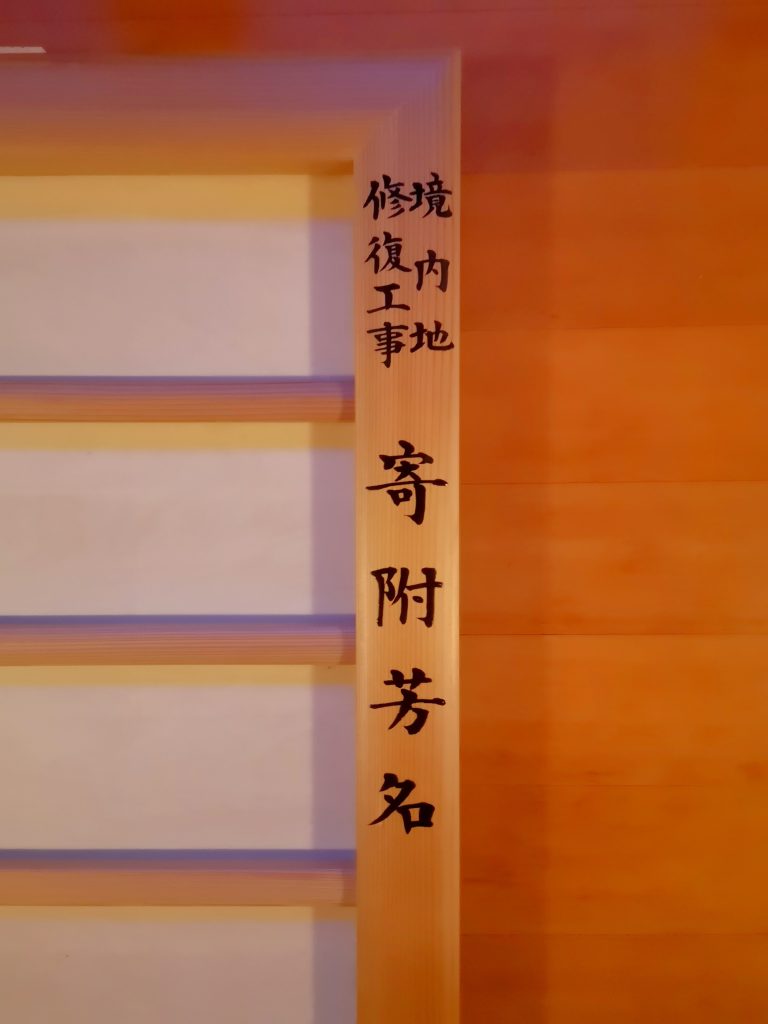 境内地
修復工事
寄附芳名